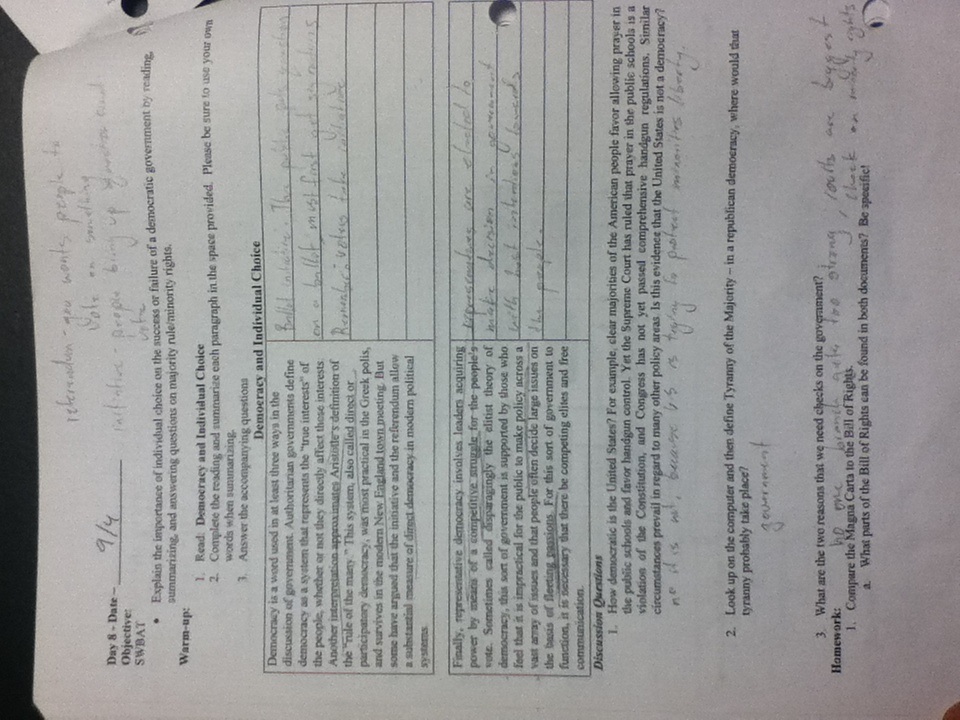 referendum - gov wants people to
vote on something
initiative - people bring up question and
vote
Day 8 - Date – 9/4
Objective:
SWBAT
• Explain the importance of individual choice on the success or failure of a democratic government by reading,
summarizing, and answering questions on majority rule/minority rights.
Warm-up:
1. Read: Democracy and Individual Choice
2. Complete the reading and summarize each paragraph in the space provided. Please be sure to use your own
words when summarizing.
3. Answer the accompanying questions
Democracy and Individual Choice
Democracy is a word used in at least three ways in the
discussion of government. Authoritarian governments define
democracy as a system that represents the "true interests" of
the people, whether or not they directly affect those interests.
Another interpretation approximates Aristotle's definition of
the "rule of the many." This system, also called direct or
participatory democracy, was most practical in the Greek polis,
and survives in the modern New England town meeting. But
some have argued that the initiative and the referendum allow
a substantial measure of direct democracy in modern political
systems.
Ballot initiative: The public puts question
on a ballot must first get signatures
Remember: voters take initiative
Finally, representative democracy involves leaders acquiring
power by means of a competitive struggle for the people's
vote. Sometimes called disparagingly the elitist theory of
democracy, this sort of government is supported by those who
feel that it is impractical for the public to make policy across a
vast array of issues and that people often decide large issues on
the basis of fleeting passions. For this sort of government to
function, it is necessary that there be competing elites and free
communication.
representatives are elected to
make decision in government
with best intentions towards
the people.
Discussion Questions
1. How democratic is the United States? For example, clear majorities of the American people favor allowing prayer in
the public schools and favor handgun control. Yet the Supreme Court has ruled that prayer in the public schools is a
violation of the Constitution, and Congress has not yet passed comprehensive handgun regulations. Similar
circumstances prevail in regard to many other policy areas. Is this evidence that the United States is not a democracy?
no it is not, because US is trying to protect minorities liberty.
2. Look up on the computer and then define Tyranny of the Majority – in a republican democracy, where would that
tyranny probably take place?
government
3. What are the two reasons that we need checks on the government?
no one branch gets too strong, courts are biggest
check on minority rights
Homework:
1. Compare the Magna Carta to the Bill of Rights.
a. What parts of the Bill of Rights can be found in both documents? Be specific!